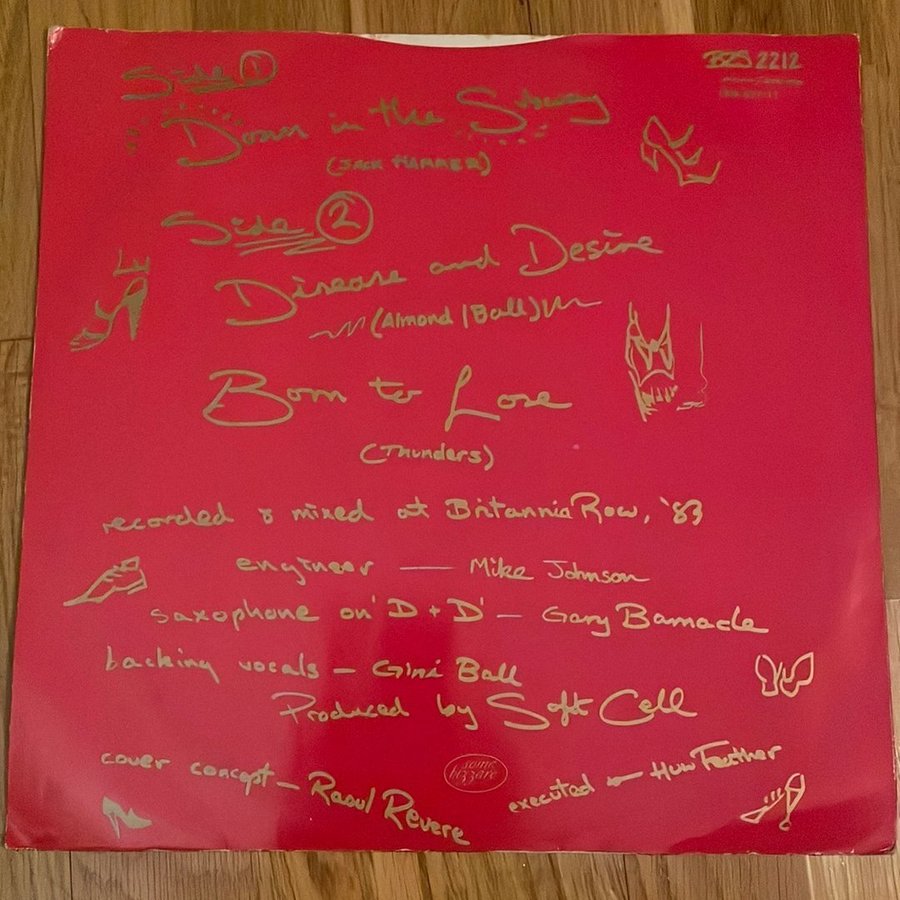 Side 1
BZS 2212
Down in the Subway
(JACK HAMMER)
Side 2
Disease and Desire
(Almond / Ball)
Born to Lose
(Thunders)
recorded & mixed at Britannia Row, '83
engineer — Mike Johnson
saxophone on 'D + D' — Gary Barnacle
backing vocals — Gini Ball
Produced by Soft Cell
cover concept — Raoul Revere
some bizzare
executed — Huw Feather